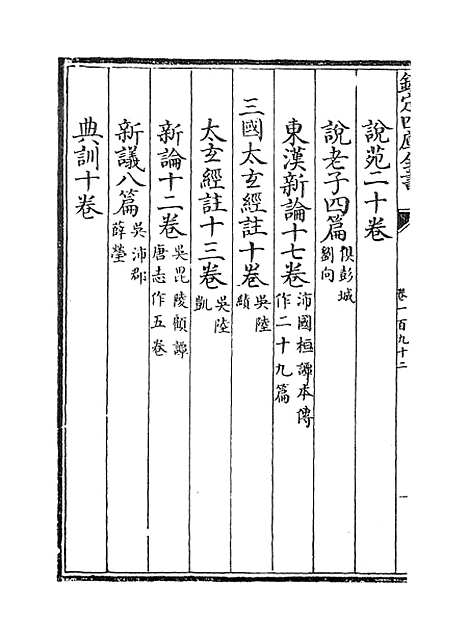 欽定四庫全書
卷一百九十二
說苑二十卷
說老子四篇 俱彭城劉向
東漢新論十七卷 沛國桓譚本傳作二十九篇
三國太玄經註十卷 吳陸績
太玄經註十三卷 吳陸凱
新論十二卷 吳毘陵顧譚唐志作五卷
新議八篇 吳沛郡薛瑩
典訓十卷